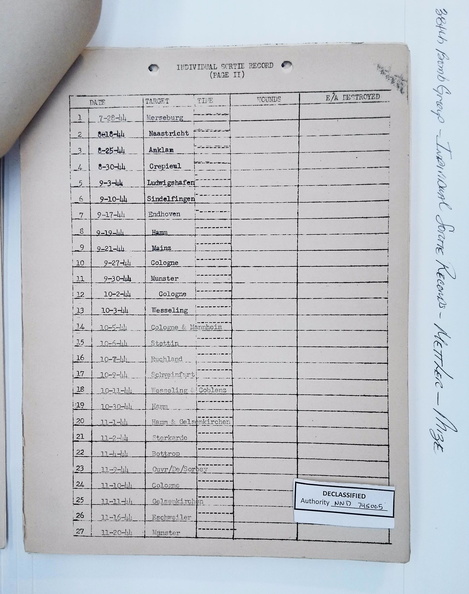 INDIVIDUAL SORTIE RECORD
(PAGE II)
DATE TARGET TIME WOUNDS E/A DESTROYED
1 7-28-44 Merseburg
2 8-18-44 Maastricht
3 8-25-44 Anklam
4 8-30-44 Crepieul
5 9-3-44 Ludwigshafen
6 9-10-44 Sindelfingen
7 9-17-44 Endhoven
8 9-19-44 Hamm
9 9-21-44 Mainz
10 9-27-44 Cologne
11 9-30-44 Munster
12 10-2-44 Cologne
13 10-3-44 Wesseling
14 10-5-44 Cologne & Mannhein
15 10-6-44 Stettin
16 10-7-44 Ruhland
17 10-9-44 Schweinfurt
18 10-11-44 Wesseling & Coblenz
19 10-30-44 Hamm
20 11-1-44 Hamm & Gelsenkirchen
21 11-2-44 Sterkerde
22 11-4-44 Bottrop
23 11-9-44 Ouvr/De/Sorbey
24 11-10-44 Cologne
25 11-11-44 Gelsenkirchen
26 11-16-44 Eschweiler
27 11-20-44 Munster
DECLASSIFIED
Authority NND 745005
384th Bomb Group - Individual Sortie Record - Mettler - Prize